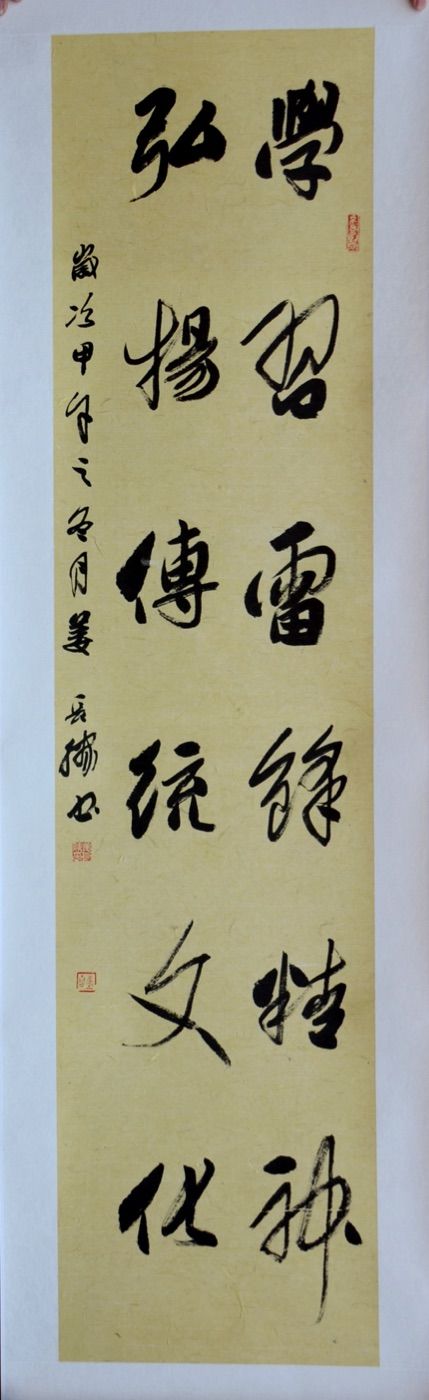 學習雷鋒精神
弘揚傳統文化
歲次甲午之冬月姜
書